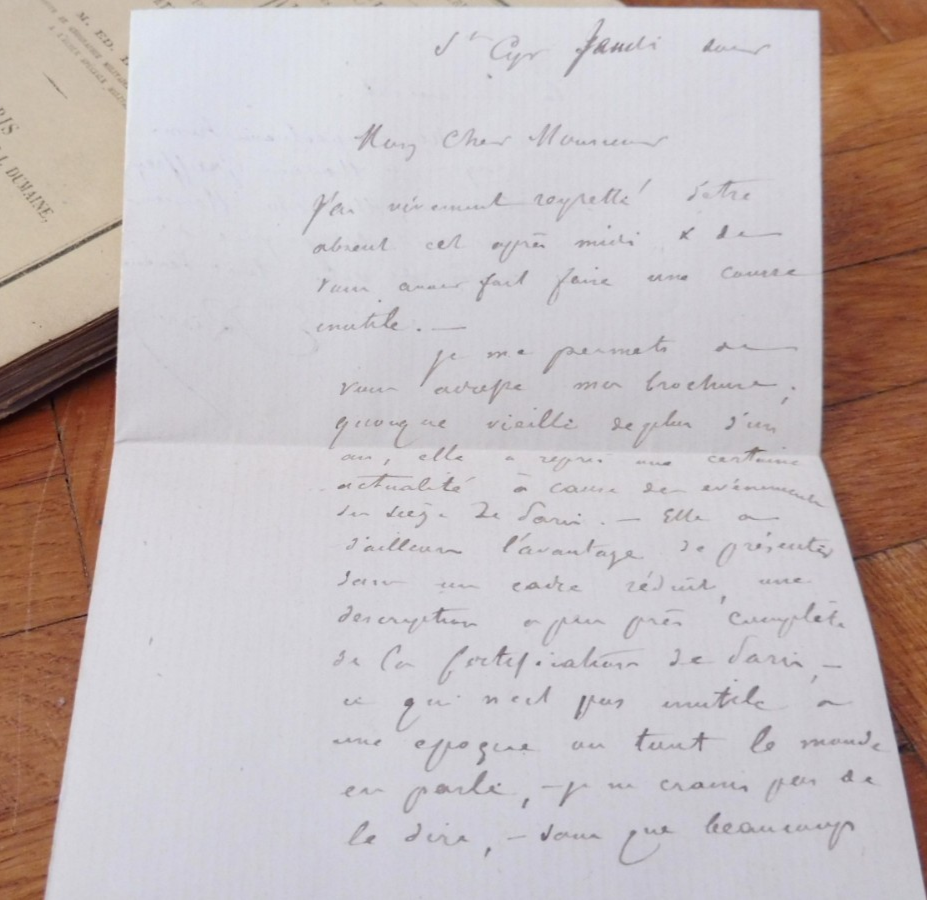 M. ED.
PARIS
DUMAINE,
St Cyr Jeudi soir
Mon cher Monsieur
J'ai vivement regretté d'etre
absent cet après midi & de
vous avoir fait faire une course
inutile. —
je me permets de
vous adresser ma brochure;
quoique vieille de plus d'un
an, elle a repris une certaine
actualité à cause des evénements
du siège de Paris. — Elle a
d'ailleurs l'avantage de présenter
dans un cadre réduit, une
description a peu près complète
de la fortification de Paris, —
ce qui n'est pas inutile à
une epoque ou tout le monde
en parle, — je ne crains pas de
le dire, — sans que beaucoup